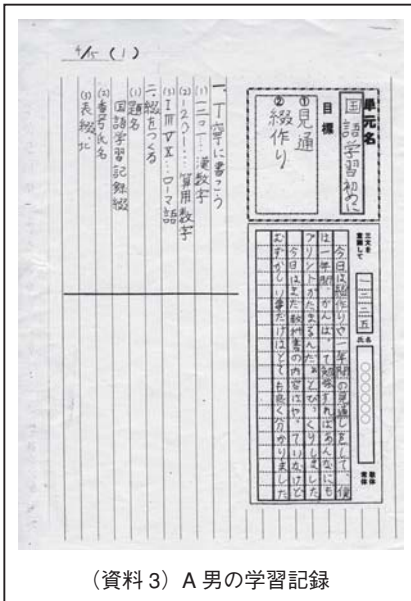 4/15 (1)
単元名
国語学習初めに
目標
①見通し
②綴作り
三文を意識して
一二三五
氏名
○○○○○○
敬体
常体
今日は綴作りや一年間の見通しをして、僕
は一年間、がんばって勉強すればあんなにも
プリントがたまるんだぁとびっくりしました
今日はまだ教科書の内容はやっていないけど
むずかしい事だけはとても良く分かりました
一、丁寧に書こう
(1)一二三…漢数字
(2)123…算用数字
(3)ⅠⅢⅤⅩ…ローマ語
二、綴をつくる
(1)題名
国語学習記録綴
(2)番号氏名
(3)表綴化
(資料3) A男の学習記録